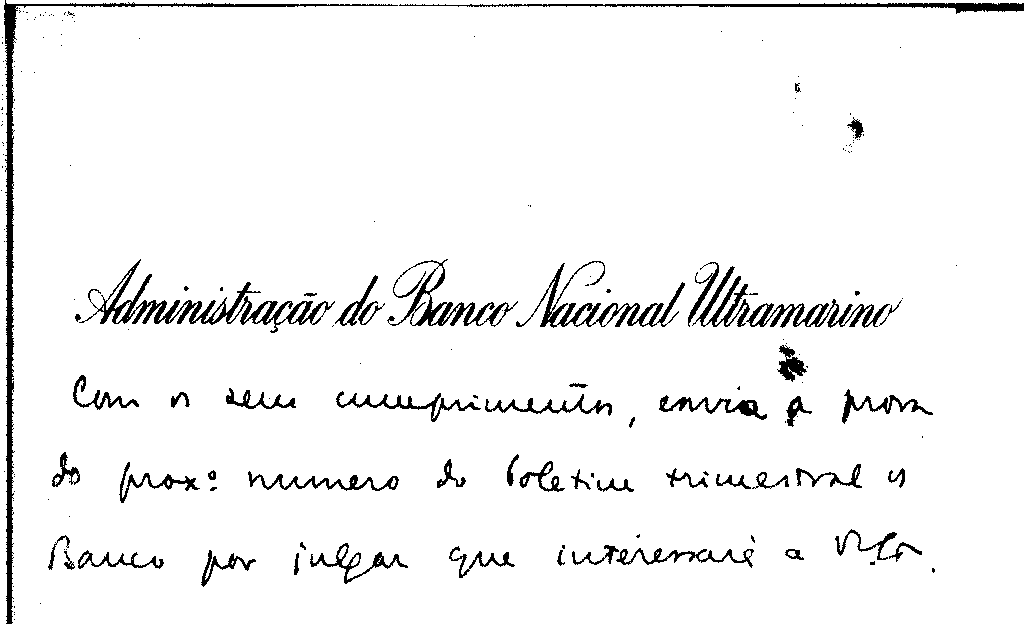 Administração do Banco Nacional Ultramarino
Com os seus cumprimentos, envia a prova
do proxº numero do boletim trimestral do
Banco por julgar que interessará a